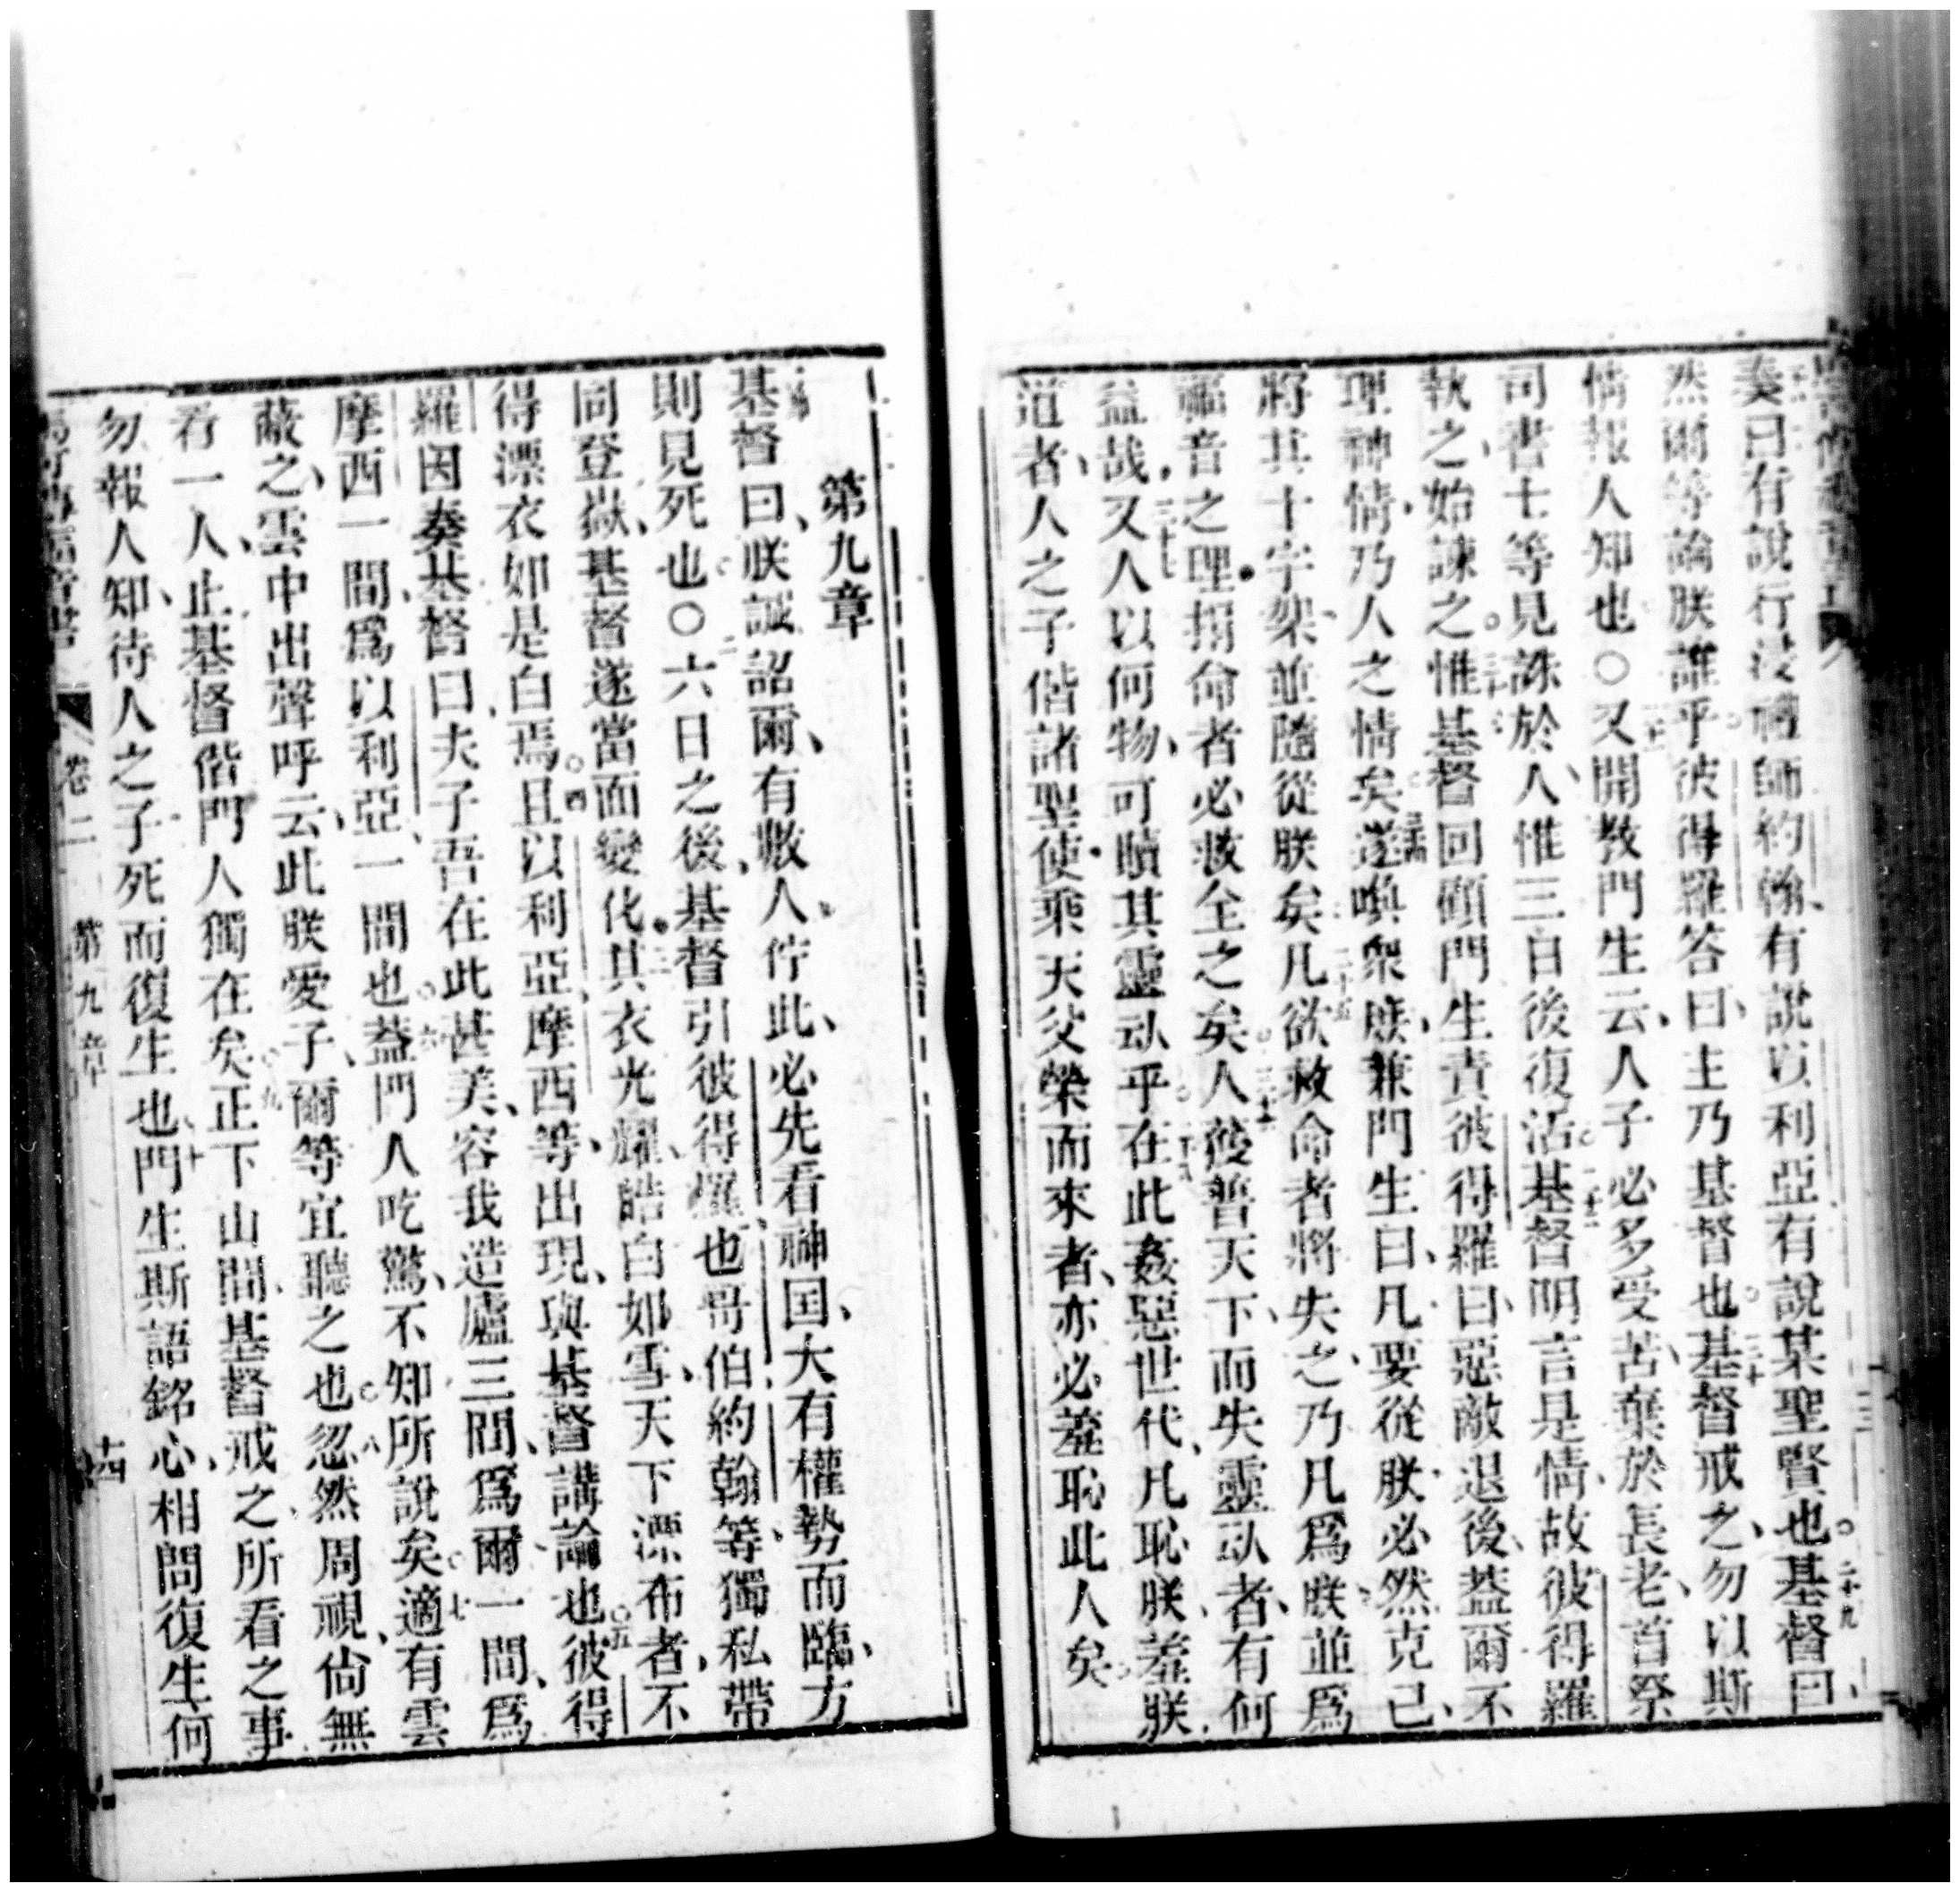 奏曰有說行浸禮師約翰有說以利亞有說某聖賢也。二十九基督曰、
然爾等論朕誰乎彼得羅答曰、主乃基督也。三十基督戒之、勿以斯
情報人知也○又開教門生云、人子必多受苦、棄於長老、首祭
司書士等見誅於人、惟三日後復活。基督明言是情、故彼得羅
執之、始諫之。惟基督回顧門生責彼得羅曰、惡敵退後、蓋爾不
理神情、乃人之情矣。三十四遂喚衆庶、兼門生曰、凡要從朕、必然克己、
將其十字架、並隨從朕矣。三十五凡欲救命者、將失之、乃凡爲朕並爲
福音之理、捐命者必救全之矣。三十六人獲普天下、而失靈㱐者、有何
益哉。三十七又人以何物、可贖其靈㱐乎。三十八在此姦惡世代、凡恥朕、羞朕
道者、人之子偕諸聖使、乘天父榮而來者、亦必羞恥此人矣
第九章
基督曰、朕誠詔爾、有數人佇此、必先看神国、大有權勢而臨、方
則見死也。○二六日之後、基督引彼得羅也哥伯約翰等、獨私帶
同登嶽、基督遂當面變化。三其衣光耀、皓白如雪、天下漂布者、不
得漂衣如是白焉。四且以利亞、摩西等、出現、與基督講論也。五彼得
羅因奏基督曰、夫子吾在此甚美、容我造廬三間、爲爾一間、爲
摩西一間、爲以利亞一間也。六蓋門人吃驚、不知所說矣。七適有雲
蔽之、雲中出聲呼云、此朕愛子、爾等宜聽之也。八忽然周視、尙無
看一人、止基督偕門人獨在矣。九正下山間、基督戒之、所看之事
勿報人知、待人之子死而復生也、十門生斯語銘心、相問復生何
卷二 第九章 十四